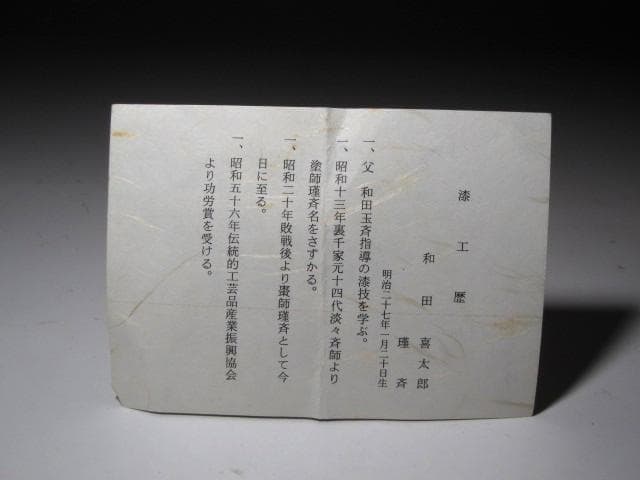 漆工歴
和田喜太郎
瑾斉
明治二十七年一月二十日生
一、父 和田玉斉指導の漆技を学ぶ。
一、昭和十三年裏千家元十四代淡々斉師より
塗師瑾斉名をさずかる。
一、昭和二十年敗戦後より棗師瑾斉として今
日に至る。
一、昭和五十六年伝統的工芸品産業振興協会
より功労賞を受ける。